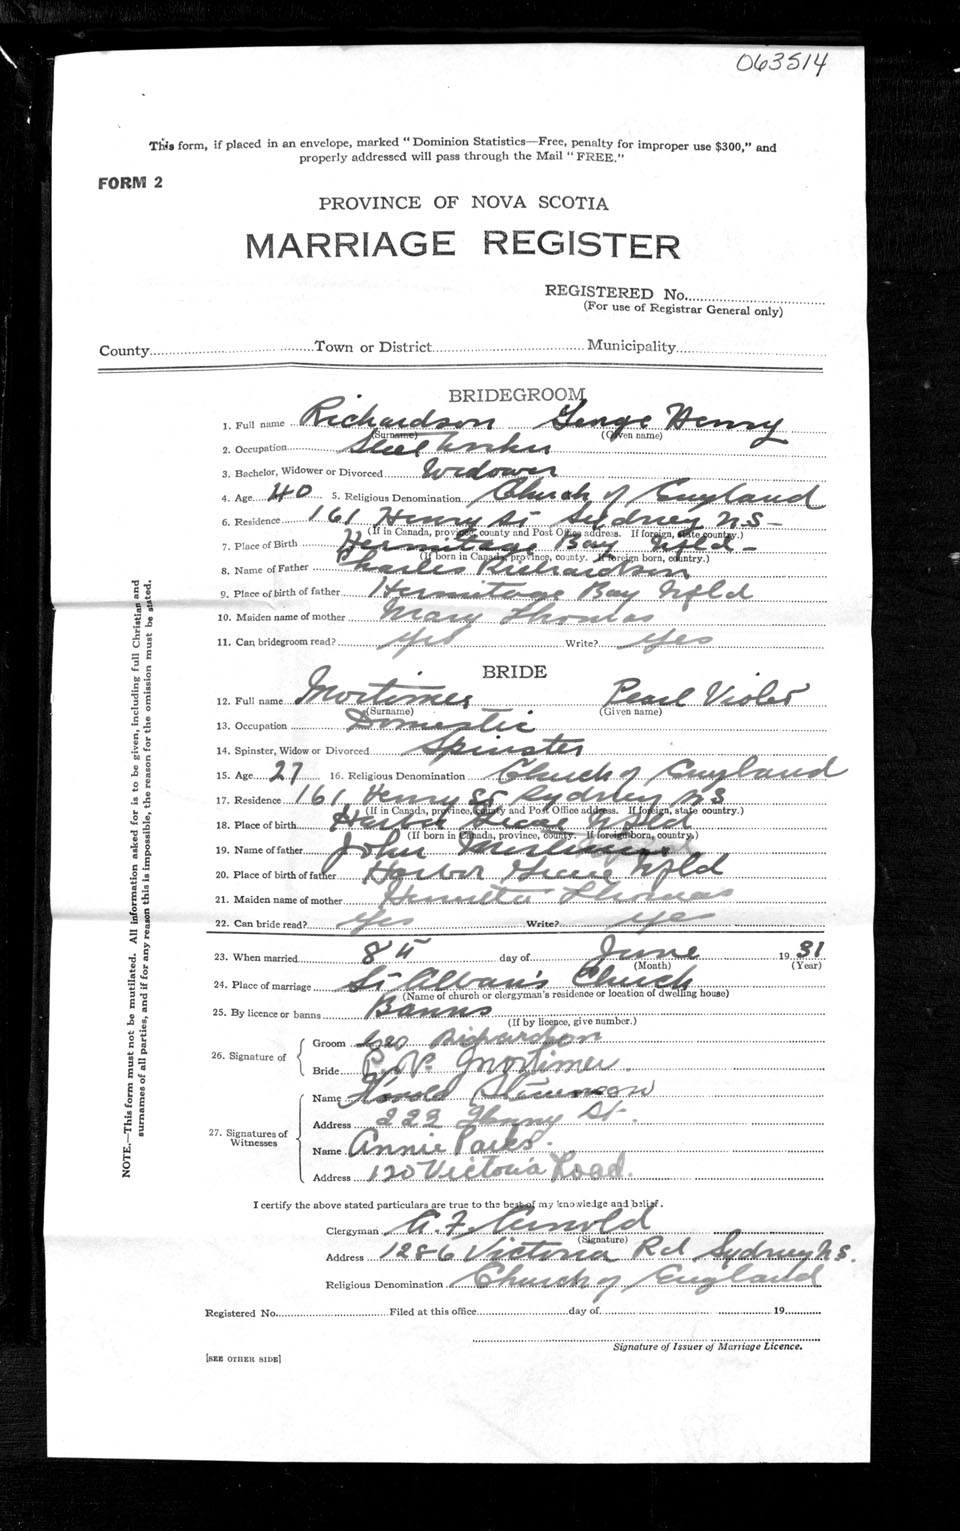 063514
This form, if placed in an envelope, marked "Dominion Statistics—Free, penalty for improper use $300," and
properly addressed will pass through the Mail "FREE."
FORM 2
PROVINCE OF NOVA SCOTIA
MARRIAGE REGISTER
REGISTERED No.
(For use of Registrar General only)
County Town or District Municipality
BRIDEGROOM
1. Full name Richardson George Henry
(Surname) (Given name)
2. Occupation Steel Worker
3. Bachelor, Widower or Divorced Widower
4. Age 40 5. Religious Denomination Church of England
6. Residence 161 Henry St Sydney NS
(If in Canada, province, county and Post Office address. If foreign, state country.)
7. Place of Birth Hermitage Bay Nfld
(If born in Canada, province, county. If foreign born, country.)
8. Name of Father Charles Richardson
9. Place of birth of father Hermitage Bay Nfld
10. Maiden name of mother Mary Thomas
11. Can bridegroom read? yes Write? yes
BRIDE
12. Full name Mortimer Pearl Violet
(Surname) (Given name)
13. Occupation Domestic
14. Spinster, Widow or Divorced Spinster
15. Age 27 16. Religious Denomination Church of England
17. Residence 161 Henry St Sydney NS
(If in Canada, province, county and Post Office address. If foreign, state country.)
18. Place of birth Harbor Grace Nfld
(If born in Canada, province, county. If foreign born, country.)
19. Name of father John Mortimer
20. Place of birth of father Harbor Grace Nfld
21. Maiden name of mother Thomas
22. Can bride read? yes Write? yes
23. When married 8th day of June 1931
(Month) (Year)
24. Place of marriage St Alban's Church
(Name of church or clergyman's residence or location of dwelling house)
25. By licence or banns Banns
(If by licence, give number.)
26. Signature of
Groom Geo Richardson
Bride P. V. Mortimer
27. Signatures of Witnesses
Name Harold
Address 222 Henry St.
Name Annie
Address 120 Victoria Road.
I certify the above stated particulars are true to the best of my knowledge and belief.
Clergyman A. F. Arnold
(Signature)
Address 1286 Victoria Rd Sydney N.S.
Religious Denomination Church of England
Registered No. Filed at this office day of 19
Signature of Issuer of Marriage Licence.
[SEE OTHER SIDE]
NOTE.—This form must not be mutilated. All information asked for is to be given, including full Christian and
surnames of all parties, and if for any reason this is impossible, the reason for the omission must be stated.